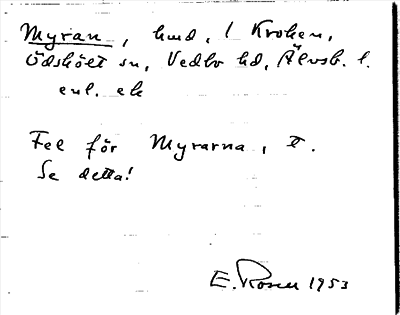 Myran, hmd, 1 Kroken,
Ödsköet sn, Vedbo hd, Älvsb. l.
enl. ek
Fel för Myrarna, t.
Se detta!
E. Rosen 1953